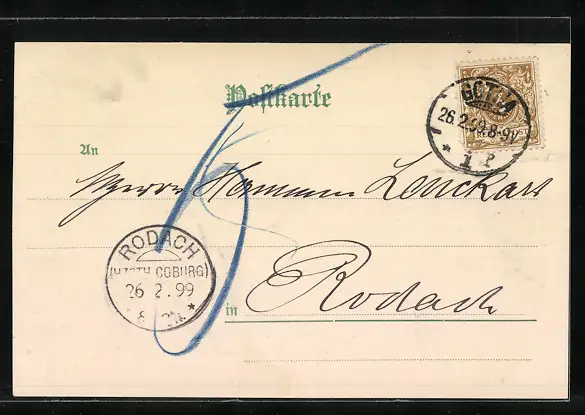 Postkarte
GOTHA
26.2.99.8-9V
* 1 P
REICHSPOST
An
Herrn Hermann Lenckart
5
RODACH
(HZGTH. COBURG)
26 2. 99
in Rodach